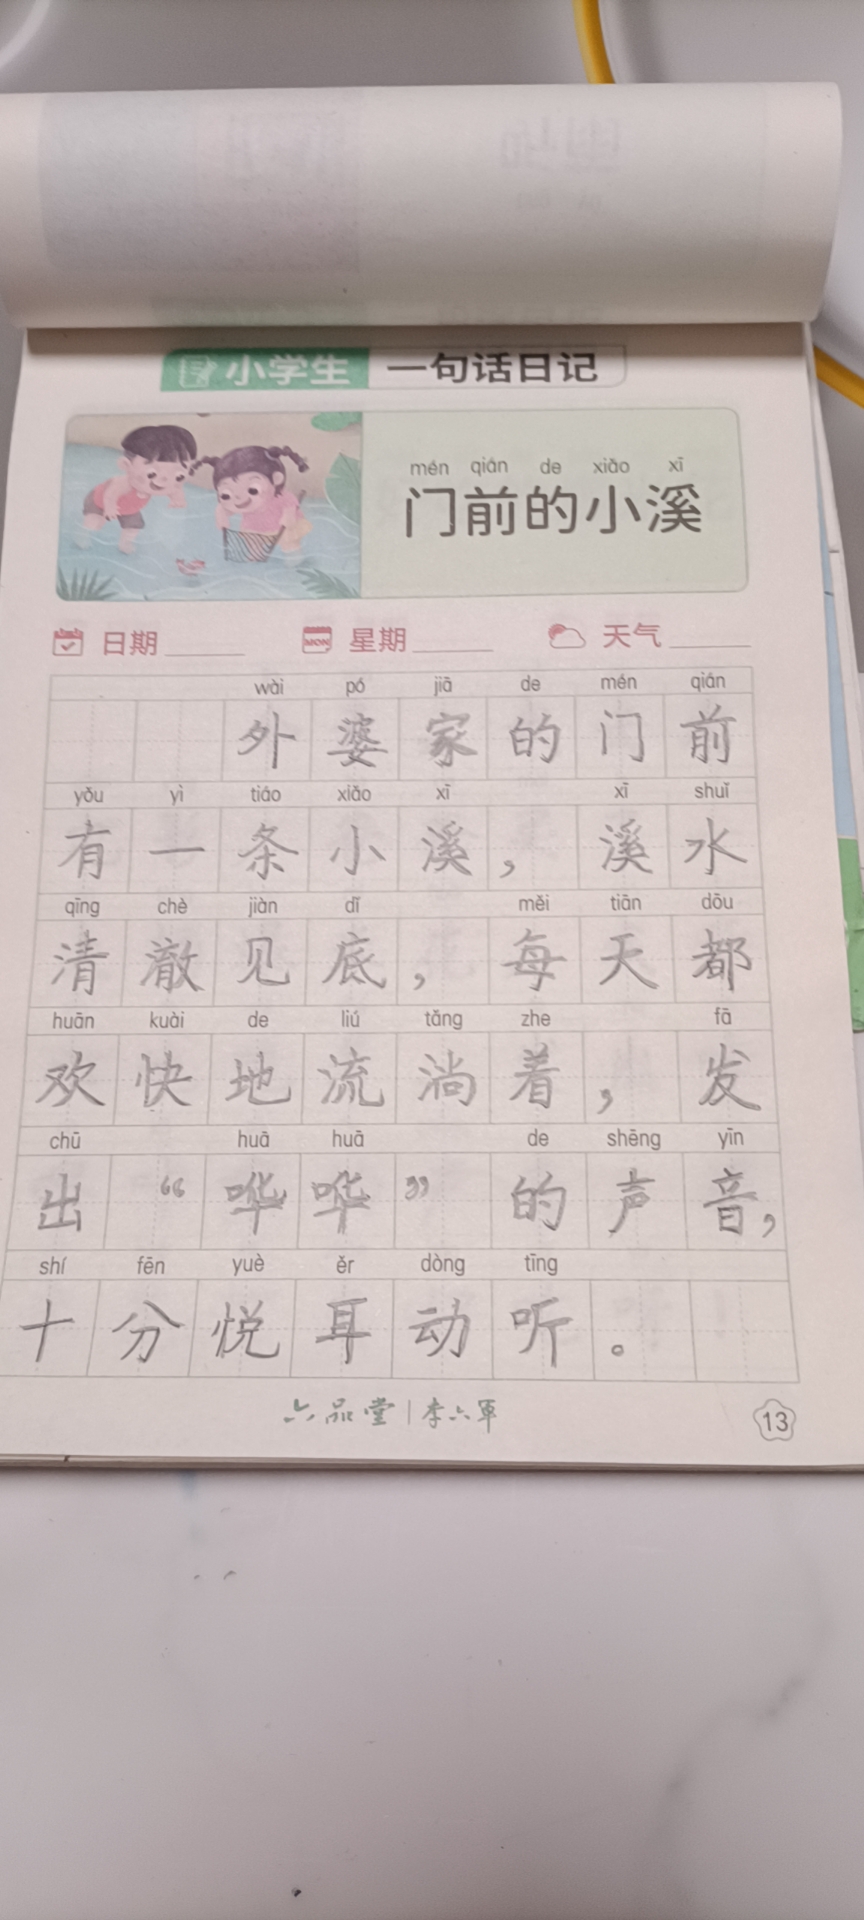 小学生 一句话日记
mén qián de xiǎo xī
门前的小溪
日期 星期 天气
wài pó jiā de mén qián
外婆家的门前
yǒu yì tiáo xiǎo xī xī shuǐ
有一条小溪，溪水
qīng chè jiàn dǐ měi tiān dōu
清澈见底，每天都
huān kuài de liú tǎng zhe fā
欢快地流淌着，发
chū huā huā de shēng yīn
出“哗哗”的声音，
shí fēn yuè ěr dòng tīng
十分悦耳动听。
六品堂|李六军
13